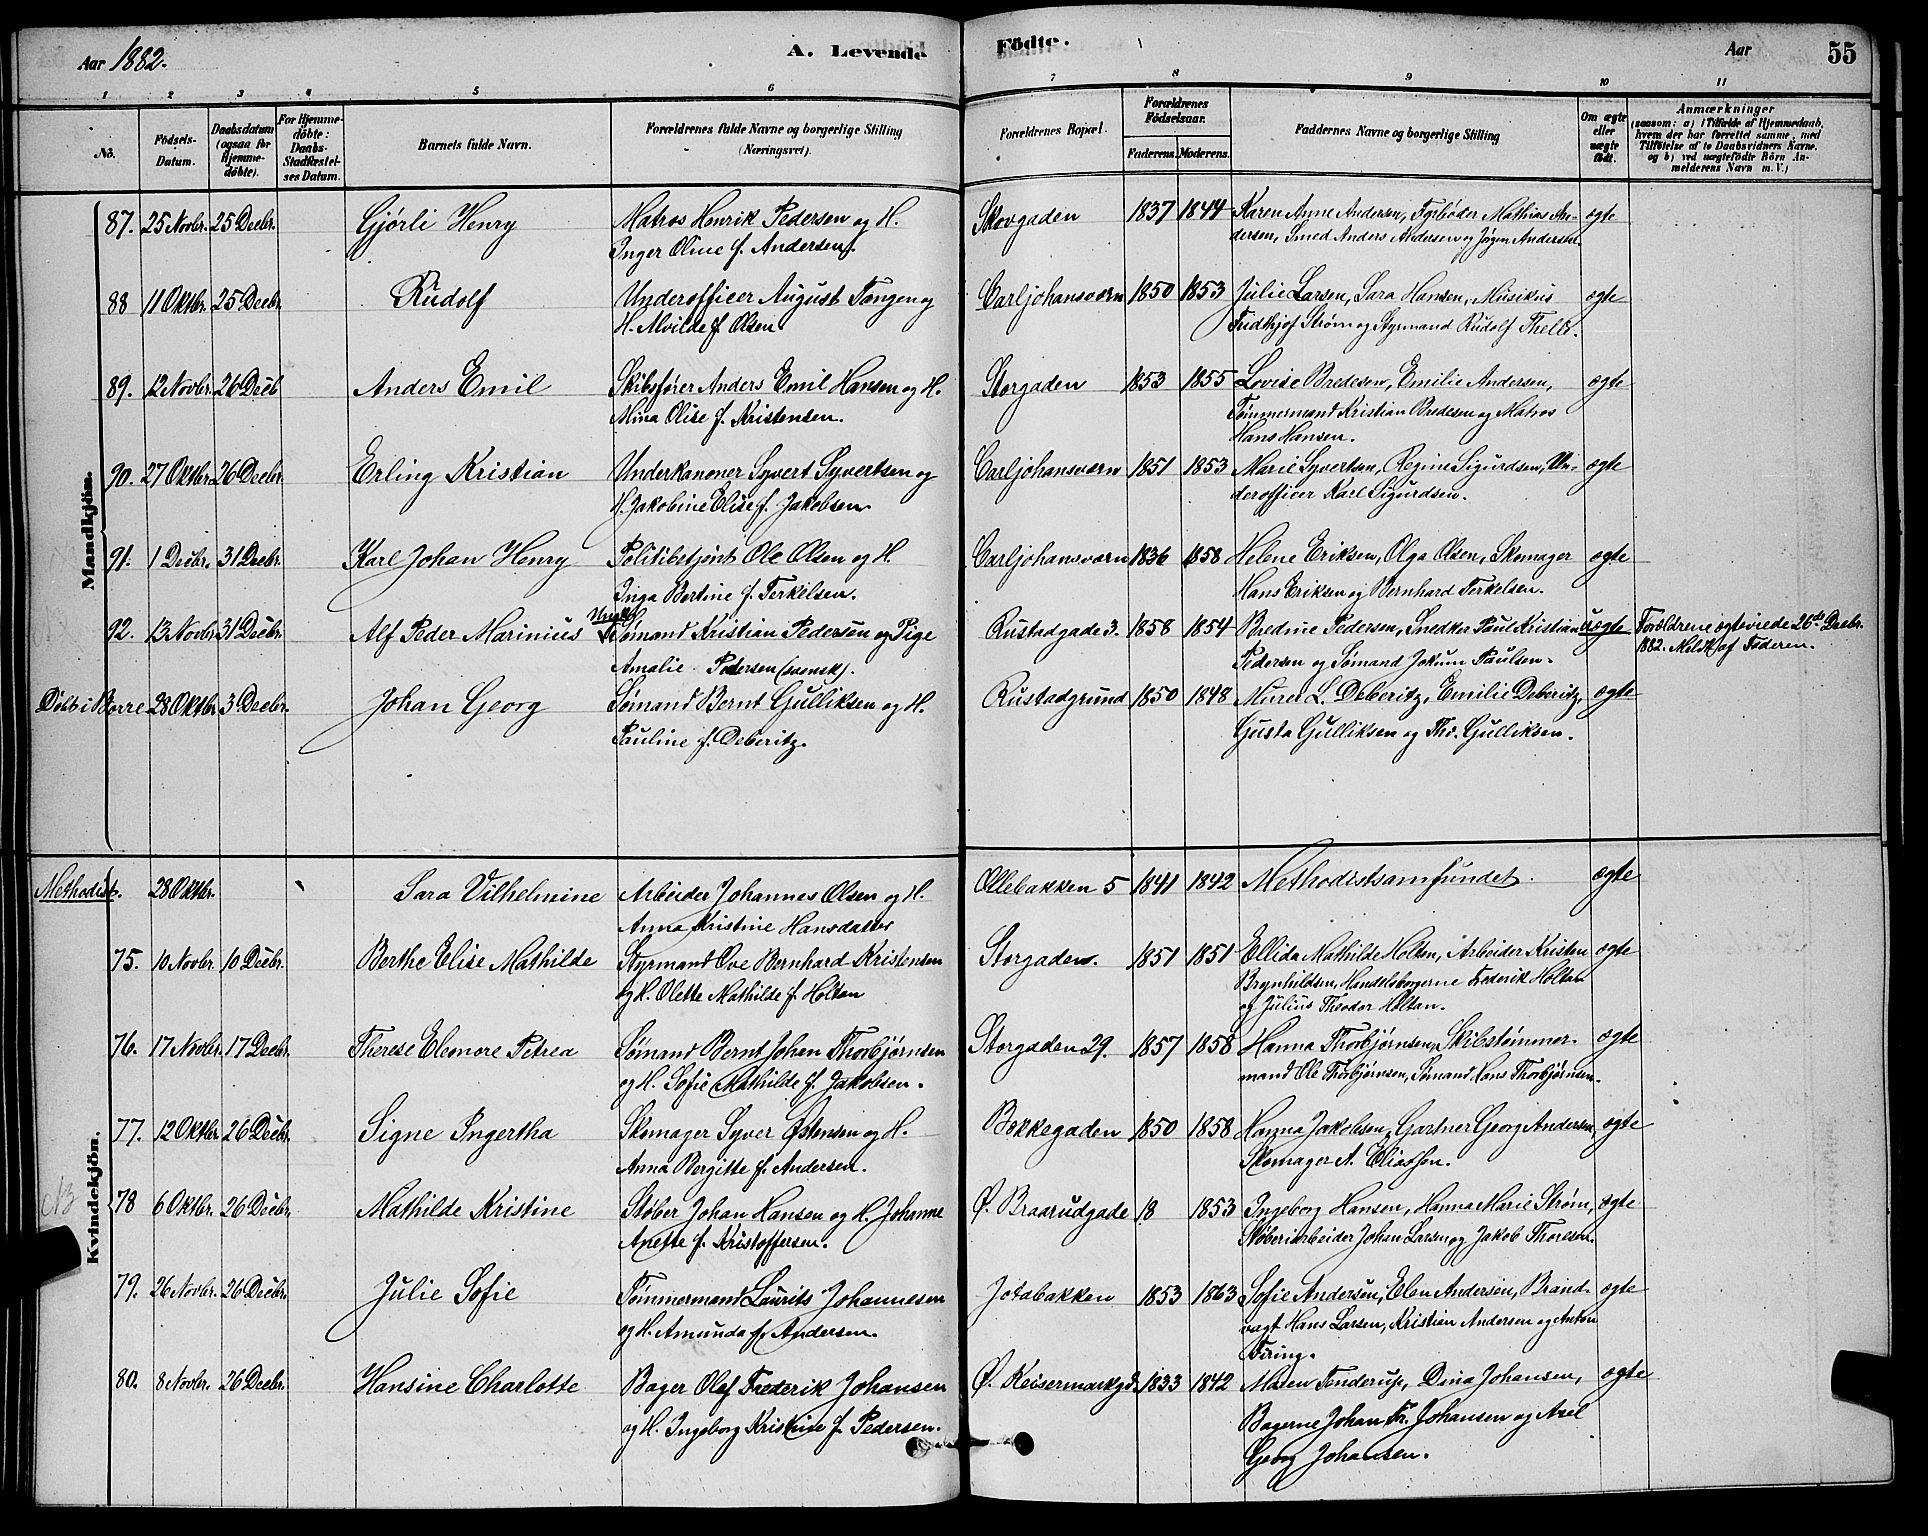 Aar 1882. A. Levende Födte. Aar 55
1 2 3 4 5 6 7 8 9 10 11
No. Födsels-Datum. Daabsdatum (ogsaa for Hjemme-döbte). For Hjemme-döbte: Daabs-Stadfæstel-ses Datum. Barnets fulde Navn. Forældrenes fulde Navne og borgerlige Stilling (Næringsvei). Forældrenes Bopæl. Forældrenes Födselsaar. Faderens. Moderens. Faddernes Navne og borgerlige Stilling Om ægte eller uægte födt. Anmærkninger
(saasom: a) i Tilfælde af Hjemmedaab, hvem der har forrettet samme, med Tilföielse af to Daabsvidners Navne, og b) ved uægtefödte Börn Anmelderens Navn m. V.)
Mandkjön.
87. 25 Novbr. 25 Decbr. Gjørli Henry Matros Henrik Pedersen og H. Skovgaden 1837 1844 Karen Anne Andersen, Farbøder Mathias An- ægte
Inger Oline f. Andersen. dersen, Smed Anders Andersen og Jørgen Andersen.
88 11 Oktbr. 25 Decbr. Rudolf Underofficer August Tangen og Carljohansværn 1850 1853 Julie Larsen, Sara Hansen, Musikus ægte
H. Alvilde f. Olsen Fridthjof Strøm og Styrmand Rudolf Thell.
89. 12 Novbr. 26 Decb Anders Emil Skibsfører Anders Emil Hansen og H. Storgaden 1853 1855 Lovise Bredesen, Emilie Andersen, ægte
Mina Olise f. Kristensen. Tømmermand Kristian Bredesen og Matros
Hans Hansen.
90. 27 Oktbr. 26 Decbr. Erling Kristian Underkanoner Syvert Syvertsen og Carljohansværn 1851 1853 Marie Syvertsen, Regine Sigurdsen, Un- ægte
H. Jakobine Elise f. Jakobsen deroffficer Karl Sigurdsen.
91. 1 Decbr. 31 Decbr. Karl Johan Henry Politibetjent Ole Olsen og H. Carljohansværn 1836 1858 Helene Eriksen, Olga Olsen, Skomager ægte
Inga Bertine f. Terkelsen. Hans Eriksen og Bernhard Terkelsen.
92. 13 Novbr. 31 Decbr. Alf Peder Marinius Ungk. Sømand Kristian Pedersen og Pige Rustadgade 3. 1858 1854 Bredine Pedersen, Snedker Paul Kristian uægte Forældrene ægteviede 26de Decbr.
Amalie Pedersen (svensk). Pedersen og Sømand Jokum Paulsen. 1882. Meldt af Faderen.
Døbt i Borre 28 Oktbr. 3 Decbr. Johan Georg Sømand Bernt Gulliksen og H. Rustadgrund 1850 1848 Murer L. Deberitz, Emilie Deberitz, ægte
Pauline f. Deberitz. Gusta Gulliksen og Th. Gulliksen.
Kvindekjön.
Methodist. 28 Oktbr. Sara Vilhelmine Arbeider Johannes Olsen og H. Ollebakken 5 1841 1842 Methodistsamfundet. ægte
Anna Kristine Hansdatter
75. 10 Novbr. 10 Decbr. Berthe Elise Mathilde Styrmand Ove Bernhard Kristensen Storgaden. 1851 1851 Ellida Mathilde Holtan, Arbeider Kristen ægte
og H. Olette Mathilde f. Holtan Brynhildsen, Handelsborgerne Frederik Holtan
og Julius Theodor Holtan.
76. 17 Novbr. 17 Decbr. Therese Eleonore Petrea Sømand Bernt Johan Thorbjørnsen Storgaden 29. 1857 1858 Hanna Thorbjørnsen, Skibstømmer- ægte
og H. Sofie Mathilde f. Jakobsen. mand Ole Thorbjørnsen, Sømand Hans Thorbjørnsen.
77. 12 Oktbr. 26 Decbr. Signe Ingertha Skomager Syver Østensen og H. Bekkegaden 1850 1858 Hanna Jakobsen, Gartner Georg Andersen, ægte
Anna Bergitte f. Andersen. Skomager A. Eliassen.
NB 78 6 Oktbr. 26 Decbr. Mathilde Kristine Støber Johan Hansen og H. Johanne Ø. Braarudgade 18 1853 Ingeborg Hansen, Hanna Marie Strøm, ægte
Anette f. Kristoffersen. Støberiarbeider Johan Larsen og Jakob Thoresen.
79. 26 Novbr. 26 Decbr. Julie Sofie Tømmermand Laurits Johannesen Jotabakken 1853 1863 Sofie Andersen, Elen Andersen, Brand- ægte
og H. Amunda f. Andersen. vagt Hans Larsen, Kristian Andersen og Anton
Firing.
80. 8 Novbr. 26 Decbr. Hansine Charlotte Bager Olaf Frederik Johansen Ø. Keisermarkgd. 1833 1842 Maren Tenderup, Dina Johansen, ægte
og H. Ingeborg Kristine f. Pedersen. Bagerne Johan Fr. Johansen og Axel
Georg Johansen.